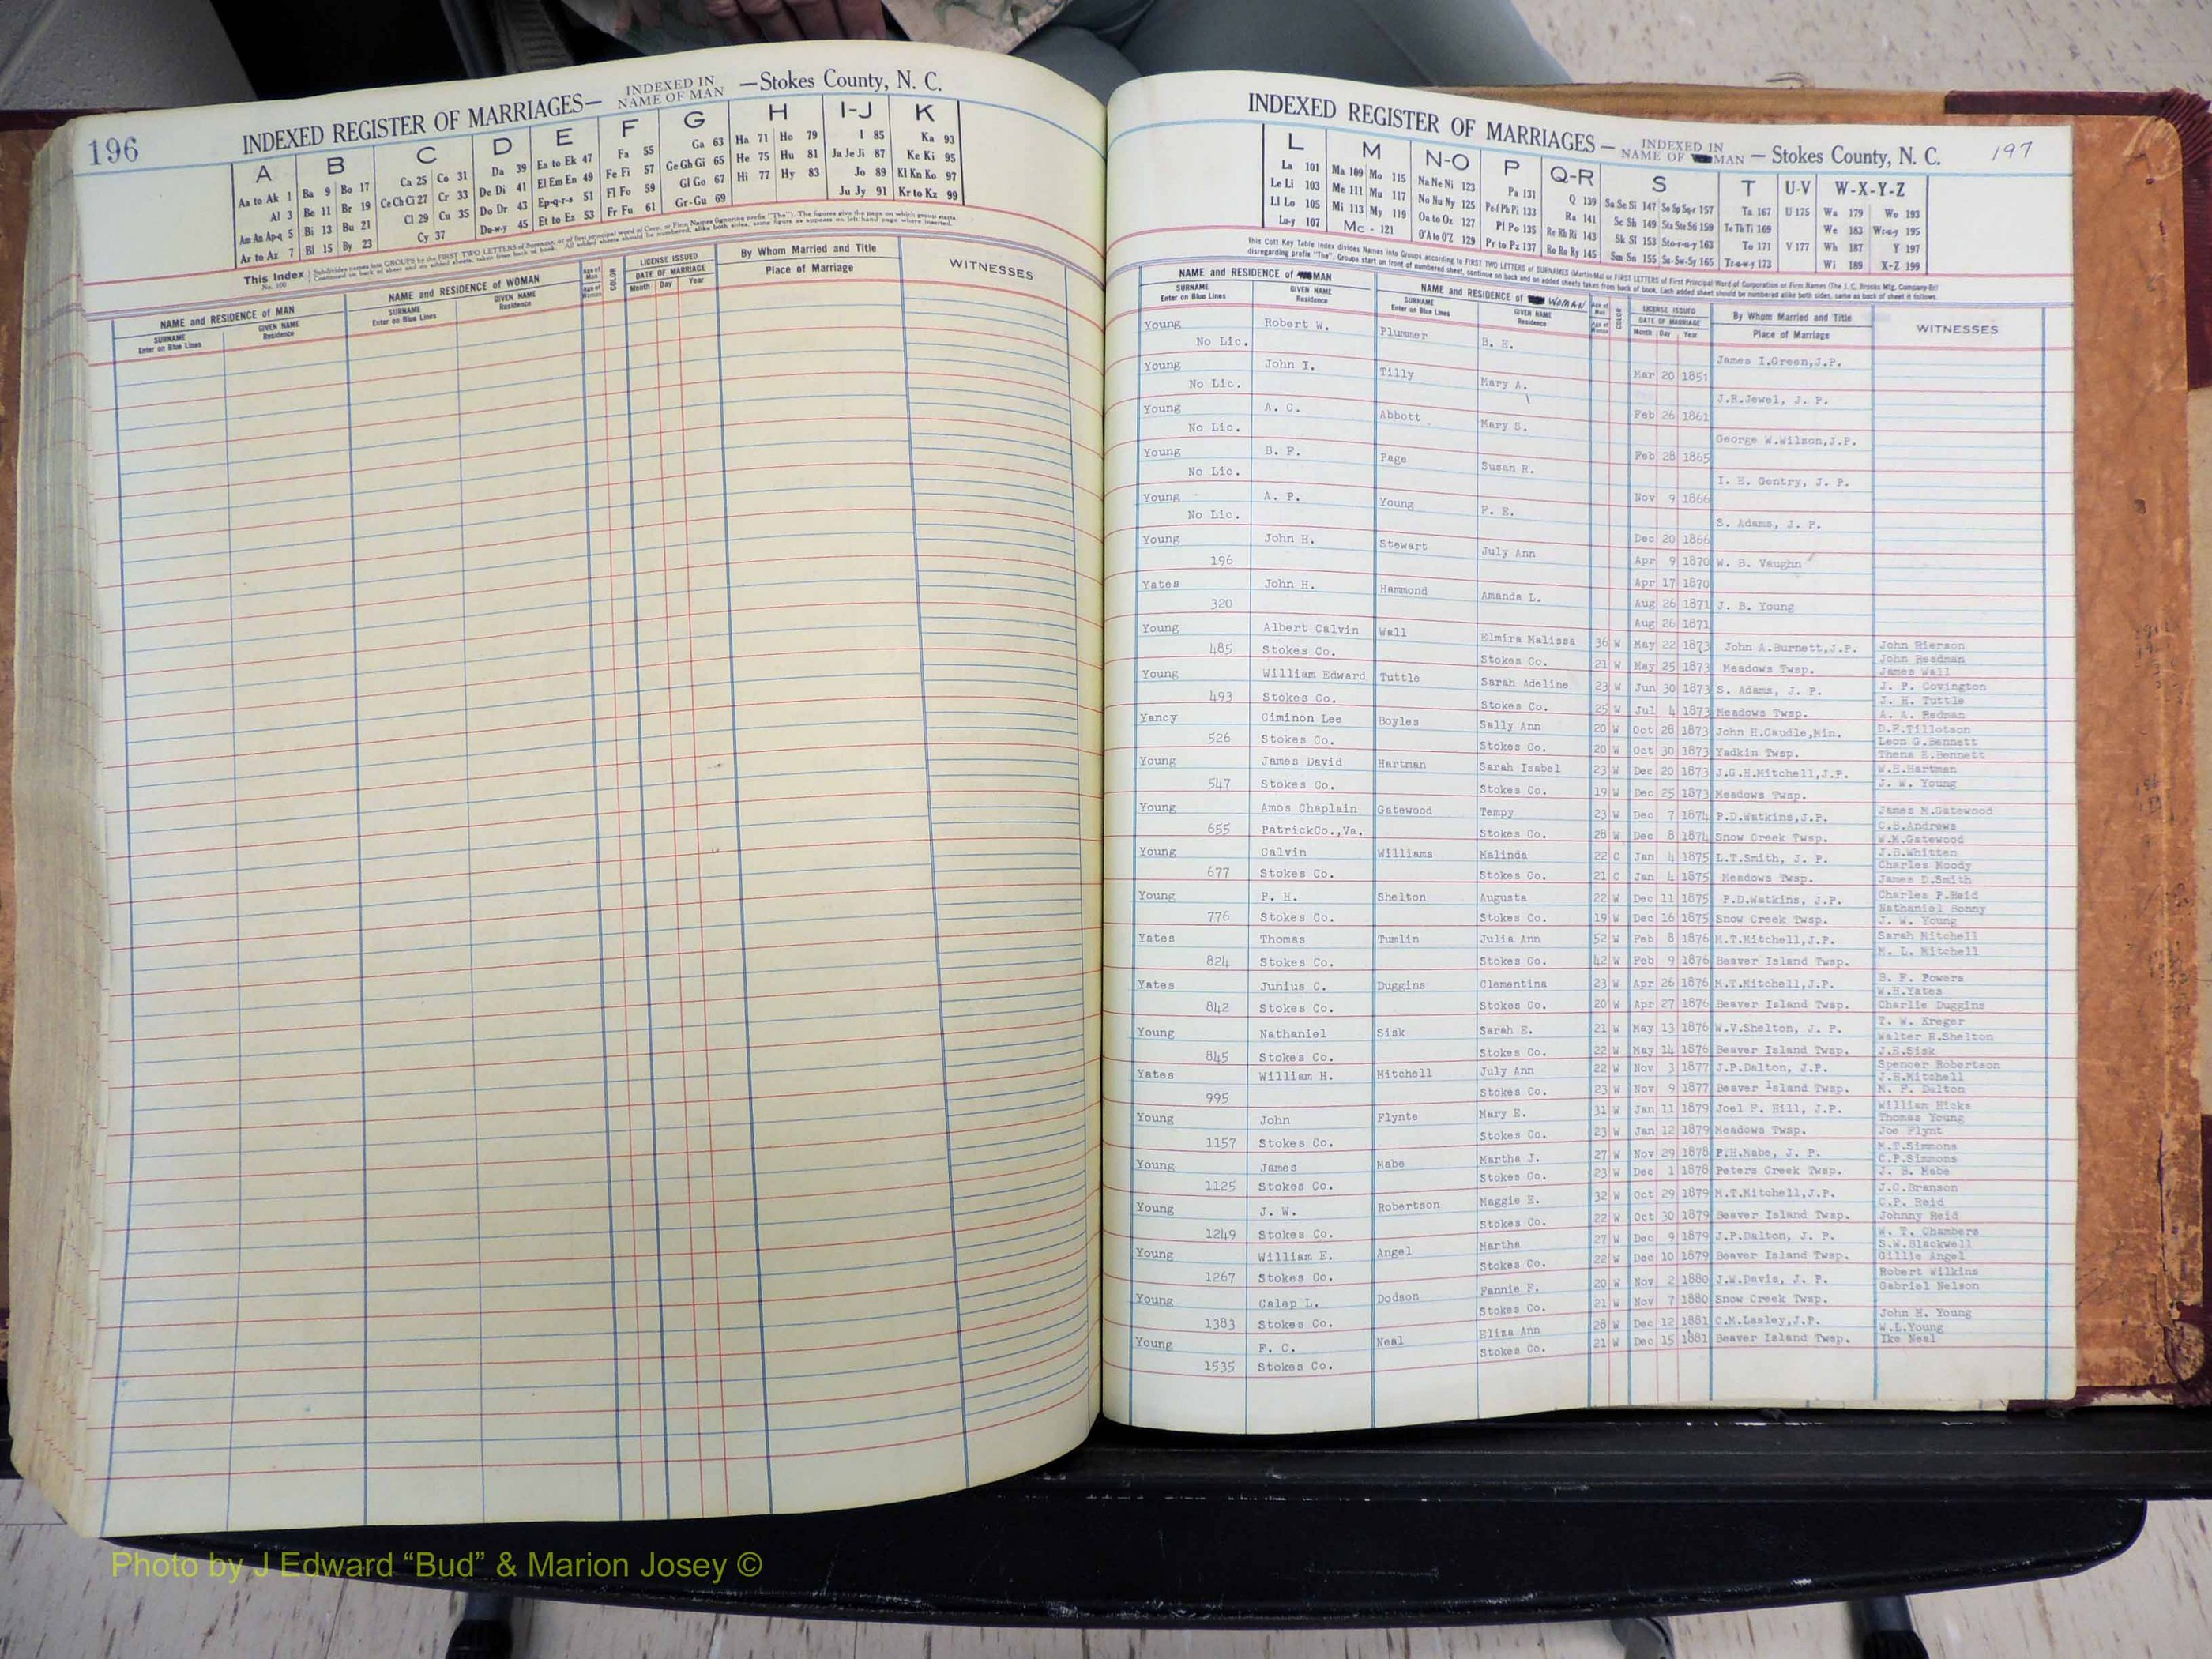 196
INDEXED REGISTER OF MARRIAGES— INDEXED IN NAME OF MAN —Stokes County, N. C.
A B C D E F G H I-J K
Aa to Ak 1 Ba 9 Bo 17 Ca 25 Co 31 Da 39 Ea to Ek 47 Fa 55 Ga 63 Ha 71 Ho 79 I 85 Ka 93
Al 3 Be 11 Br 19 Ce Ch Ci 27 Cr 33 De Di 41 El Em En 49 Fe Fi 57 Ge Gh Gi 65 He 75 Hu 81 Ja Je Ji 87 Ke Ki 95
Am An Ap-q 5 Bi 13 Bu 21 Cl 29 Cu 35 Do Dr 43 Ep-q-r-s 51 Fl Fo 59 Gl Go 67 Hi 77 Hy 83 Jo 89 Kl Kn Ko 97
Ar to Az 7 Bl 15 By 23 Cy 37 Du-w-y 45 Et to Ez 53 Fr Fu 61 Gr-Gu 69 Ju Jy 91 Kr to Kz 99
This Index
NAME and RESIDENCE of MAN NAME and RESIDENCE of WOMAN Age of Man Age of Woman COLOR LICENSE ISSUED DATE OF MARRIAGE By Whom Married and Title WITNESSES
SURNAME Enter on Blue Lines GIVEN NAME Residence SURNAME Enter on Blue Lines GIVEN NAME Residence Month Day Year Place of Marriage
INDEXED REGISTER OF MARRIAGES— INDEXED IN NAME OF MAN — Stokes County, N. C. 197
L M N-O P Q-R S T U-V W-X-Y-Z
La 101 Ma 109 Mo 115 Na Ne Ni 123 Pa 131 Q 139 Sa Se Si 147 So Sp Sq-r 157 Ta 167 U 175 Wa 179 Wo 193
Le Li 103 Me 111 Mu 117 No Nu Ny 125 Pe-f Ph Pi 133 Ra 141 Sc Sh 149 Sta Ste Sti 159 Te Th Ti 169 We 183 Wr-s-y 195
Ll Lo 105 Mi 113 My 119 Oa to Oz 127 Pl Po 135 Re Rh Ri 143 Sk Sl 153 Sto-r-u-y 163 To 171 V 177 Wh 187 Y 197
Lu-y 107 Mc - 121 O'A to O'Z 129 Pr to Pz 137 Ro Ru Ry 145 Sm Sn 155 Su-Sw-Sy 165 Tr-u-w-y 173 Wi 189 X-Z 199
This Cott Key Table Index divides Names into Groups according to FIRST TWO LETTERS of SURNAMES (Martin-Ma) or FIRST LETTERS of First Principal Word of Corporation or Firm Names (The J. C. Brooks Mfg. Company-Br)
disregarding prefix "The". Groups start on front of numbered sheet, continue on back and on added sheets taken from back of book. Each added sheet should be numbered alike both sides, same as back of sheet it follows.
NAME and RESIDENCE of MAN NAME and RESIDENCE of WOMAN Age of Man Age of Woman COLOR LICENSE ISSUED DATE OF MARRIAGE By Whom Married and Title WITNESSES
SURNAME Enter on Blue Lines GIVEN NAME Residence SURNAME Enter on Blue Lines GIVEN NAME Residence Month Day Year Place of Marriage
Young Robert W. Plummer B. E. James I.Green,J.P.
No Lic. Mar 20 1851
Young John I. Tilly Mary A. J.R.Jewel, J. P.
No Lic. Feb 26 1861
Young A. C. Abbott Mary S. George W.Wilson,J.P.
No Lic. Feb 28 1865
Young B. F. Page Susan R. I. E. Gentry, J. P.
No Lic. Nov 9 1866
Young A. P. Young F. E. S. Adams, J. P.
No Lic. Dec 20 1866
Young John H. Stewart July Ann Apr 9 1870 W. B. Vaughn
196 Apr 17 1870
Yates John H. Hammond Amanda L. Aug 26 1871 J. B. Young
320 Aug 26 1871
Young Albert Calvin Wall Elmira Malissa 36 W May 22 1873 John A.Burnett,J.P. John Rierson
John Readman
485 Stokes Co. Stokes Co. 21 W May 25 1873 Meadows Twsp. James Wall
Young William Edward Tuttle Sarah Adeline 23 W Jun 30 1873 S. Adams, J. P. J. P. Covington
J. H. Tuttle
493 Stokes Co. Stokes Co. 25 W Jul 4 1873 Meadows Twsp. A. A. Redman
Yancy Ciminon Lee Boyles Sally Ann 20 W Oct 28 1873 John H.Caudle,Min. D.F.Tillotson
Leon G.Bennett
526 Stokes Co. Stokes Co. 20 W Oct 30 1873 Yadkin Twsp. Thens E.Bennett
Young James David Hartman Sarah Isabel 23 W Dec 20 1873 J.G.H.Mitchell,J.P. W.H.Hartman
J. W. Young
547 Stokes Co. Stokes Co. 19 W Dec 25 1873 Meadows Twsp.
Young Amos Chaplain Gatewood Tempy 23 W Dec 7 1874 P.D.Watkins,J.P. James M.Gatewood
C.B.Andrews
655 PatrickCo.,Va. Stokes Co. 28 W Dec 8 1874 Snow Creek Twsp. W.M.Gatewood
Young Calvin Williams Malinda 22 C Jan 4 1875 L.T.Smith, J. P. J.B.Whitten
Charles Moody
677 Stokes Co. Stokes Co. 21 C Jan 4 1875 Meadows Twsp. James D.Smith
Young P. H. Shelton Augusta 22 W Dec 11 1875 P.D.Watkins, J.P. Charles P.Reid
Nathaniel Bonny
776 Stokes Co. Stokes Co. 19 W Dec 16 1875 Snow Creek Twsp. J. W. Young
Yates Thomas Tumlin Julia Ann 52 W Feb 8 1876 M.T.Mitchell,J.P. Sarah Mitchell
M. L. Mitchell
824 Stokes Co. Stokes Co. 42 W Feb 9 1876 Beaver Island Twsp.
Yates Junius C. Duggins Clementina 23 W Apr 26 1876 M.T.Mitchell,J.P. B. F. Powers
W.H.Yates
842 Stokes Co. Stokes Co. 20 W Apr 27 1876 Beaver Island Twsp. Charlie Duggins
Young Nathaniel Sisk Sarah E. 21 W May 13 1876 W.V.Shelton, J. P. T. W. Kreger
Walter R.Shelton
845 Stokes Co. Stokes Co. 22 W May 14 1876 Beaver Island Twsp. J.E.Sisk
Yates William H. Mitchell July Ann 22 W Nov 3 1877 J.P.Dalton, J.P. Spencer Robertson
J.H.Mitchell
995 Stokes Co. 23 W Nov 9 1877 Beaver Island Twsp. M. F. Dalton
Young John Flynte Mary E. 31 W Jan 11 1879 Joel F. Hill, J.P. William Hicks
Thomas Young
1157 Stokes Co. Stokes Co. 23 W Jan 12 1879 Meadows Twsp. Joe Flynt
Young James Mabe Martha J. 27 W Nov 29 1878 P.H.Mabe, J. P. M.T.Simmons
C.P.Simmons
1125 Stokes Co. Stokes Co. 23 W Dec 1 1878 Peters Creek Twsp. J. S. Mabe
Young J. W. Robertson Maggie E. 32 W Oct 29 1879 M.T.Mitchell,J.P. J.C.Branson
C.P. Reid
1249 Stokes Co. Stokes Co. 22 W Oct 30 1879 Beaver Island Twsp. Johnny Reid
Young William E. Angel Martha 27 W Dec 9 1879 J.P.Dalton, J. P. W. T. Chambers
S.W.Blackwell
1267 Stokes Co. Stokes Co. 22 W Dec 10 1879 Beaver Island Twsp. Gillie Angel
Young Calep L. Dodson Fannie F. 20 W Nov 2 1880 J.W.Davis, J. P. Robert Wilkins
Gabriel Nelson
1383 Stokes Co. Stokes Co. 21 W Nov 7 1880 Snow Creek Twsp.
Young F. C. Neal Eliza Ann 28 W Dec 12 1881 C.M.Lasley,J.P. John H. Young
W.L.Young
1535 Stokes Co. Stokes Co. 21 W Dec 15 1881 Beaver Island Twsp. Ike Neal
Photo by J Edward “Bud” & Marion Josey ©